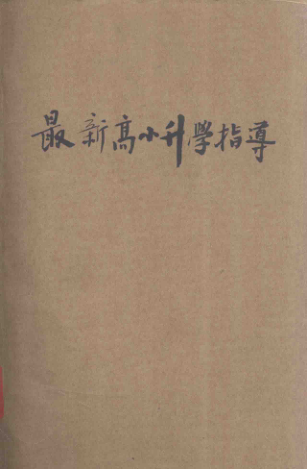 最新高小升學指导